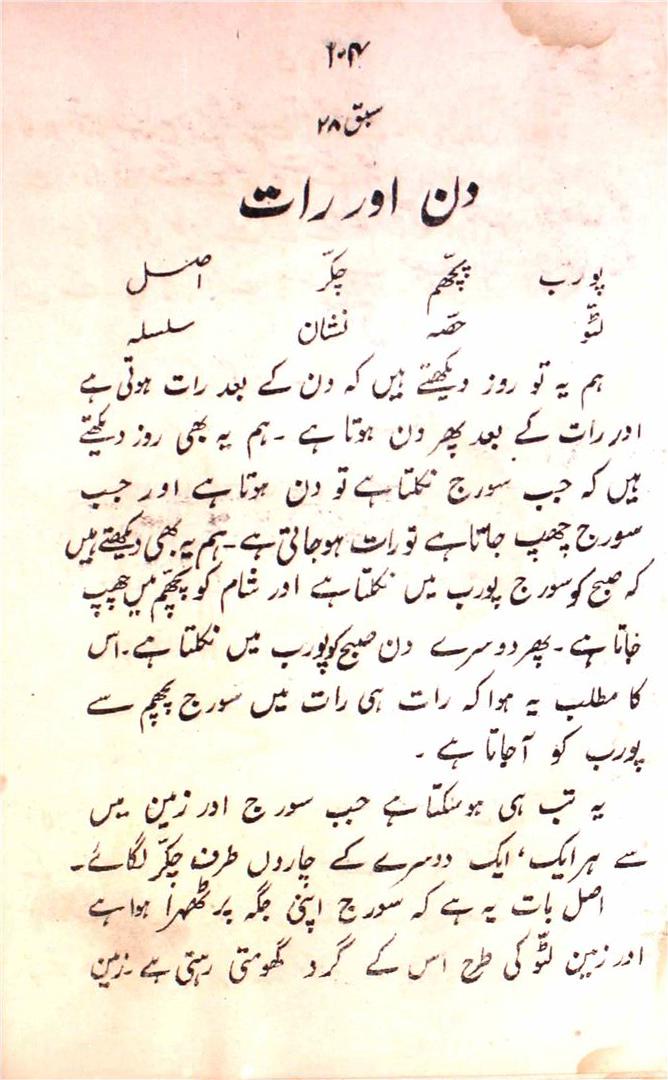 ۱۰۴
سبق ۲۸
دن اور رات
پورب پچھّم چکّر اصل
لٹّو حصّہ نشان سلسلہ
ہم یہ تو روز دیکھتے ہیں کہ دن کے بعد رات ہوتی ہے
اور رات کے بعد پھر دن ہوتا ہے ۔ ہم یہ بھی روز دیکھتے
ہیں کہ جب سورج نکلتا ہے تو دن ہوتا ہے اور جب
سورج چھپ جاتا ہے تو رات ہوجاتی ہے ۔ ہم یہ بھی دیکھتے ہیں
کہ صبح کو سورج پورب میں نکلتا ہے اور شام کو پچھّم میں چھپ
جاتا ہے ۔ پھر دوسرے دن صبح کو پورب میں نکلتا ہے ۔ اس
کا مطلب یہ ہوا کہ رات ہی رات میں سورج پچھم سے
پورب کو آجاتا ہے ۔
یہ تب ہی ہوسکتا ہے جب سورج اور زمین میں
سے ہر ایک ، ایک دوسرے کے چاروں طرف چکّر لگائے ۔
اصل بات یہ ہے کہ سورج اپنی جگہ پر ٹھہرا ہوا ہے
اور زمین لٹّو کی طرح اس کے گرد گھومتی رہتی ہے ۔ زمین